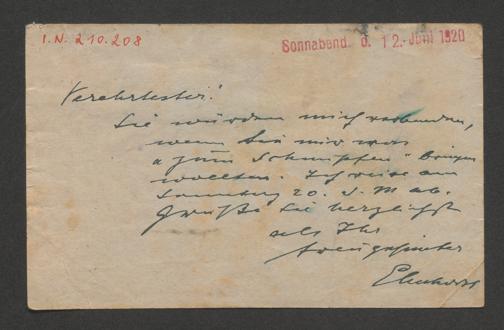 I.N. 210.208
Sonnabend, d. 12. Juni 1920
Verehrtester!
Sie würden mich verbinden,
wenn Sie mir was
"zum Schnupfen" bringen
wollten. Ich reise am
Sonntag 20. d. M. ab.
Grüße Sie herzlichst
als Ihr
treugesinnter